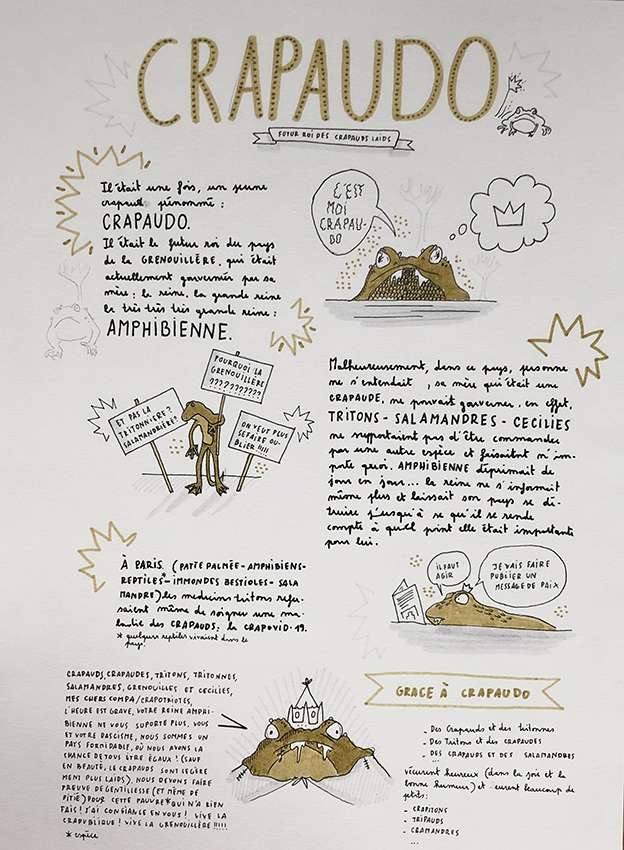 CRAPAUDO
FUTUR ROI DES CRAPAUDS LAIDS
Il était une fois, un jeune
crapaud prénommé :
CRAPAUDO.
Il était le futur roi du pays
de la GRENOUILLÈRE, qui était
actuellement gouvernée par sa
mère : la reine, la grande reine
la très très très grande reine :
AMPHIBIENNE.
C'EST
MOI
CRAPAU-
DO
POURQUOI LA
GRENOUILLÈRE
???????????
ET PAS LA
TRITONNIERE?
SALAMANDRIÈRE?
ON VEUT PLUS
SE FAIRE OU-
BLIER !!!!!
Malheureusement, dans ce pays, personne
ne s'entendait, sa mère qui était une
CRAPAUDE, ne pouvait gouverner, en effet,
TRITONS - SALAMANDRES - CECILIES
ne supportaient pas d'être commandés
par une autre espèce et faisaient n'im-
porte quoi. AMPHIBIENNE déprimait de
jour en jour... la reine ne s'informait
même plus et laissait son pays se dé-
truire jusqu'à se qu'il se rende
compte à quel point elle était importante
pour lui.
À PARIS (PATTE PALMÉE-AMPHIBIENS-
REPTILES*-IMMONDES BESTIOLES-SALA
MANDRE) les medecins tritons refu-
saient même de soigner une ma-
ladie des CRAPAUDS: la CRAPOVID-19.
* quelques reptiles vivaient dans le
pays.
IL FAUT
AGIR
JE VAIS FAIRE
PUBLIER UN
MESSAGE DE PAIX
CRAPAUDS, CRAPAUDES, TRITONS, TRITONNES,
SALAMANDRES, GRENOUILLES ET CECILIES,
MES CHERS COMPA/CRAPOTRIOTES,
L'HEURE EST GRAVE, VOTRE REINE AMPHI-
BIENNE NE VOUS SUPORTE PLUS, VOUS
ET VOTRE RASCISME, NOUS SOMMES UN
PAYS FORMIDABLE, OÙ NOUS AVONS LA
CHANCE DE TOUS ÊTRE ÉGAUX ! (SAUF
EN BEAUTÉ, LE CRAPAUDS SONT LEGÈRE
MENT PLUS LAIDS), NOUS DEVONS FAIRE
PREUVE DE GENTILLESSE (ET MÊME DE
PITIÉ) POUR CETTE PAUVRE* QUI N'A RIEN
FAIS ! J'AI CONFIANCE EN VOUS ! VIVE LA
CRAPUBLIQUE ! VIVE LA GRENOUILLÈRE !!!!!
* espèce
GRACE À CRAPAUDO
_ Des Crapauds et des tritonnes
_ Des Tritons et des CRAPAUDES
_ DES CRAPAUDS ET DES SALAMANDRES
...
vécurent heureux (dans la joie et la
bonne humeur) et eurent beaucoup de
petits:
_ CRAPITONS
_ TRIPAUDS
_ CRAMANDRES
...